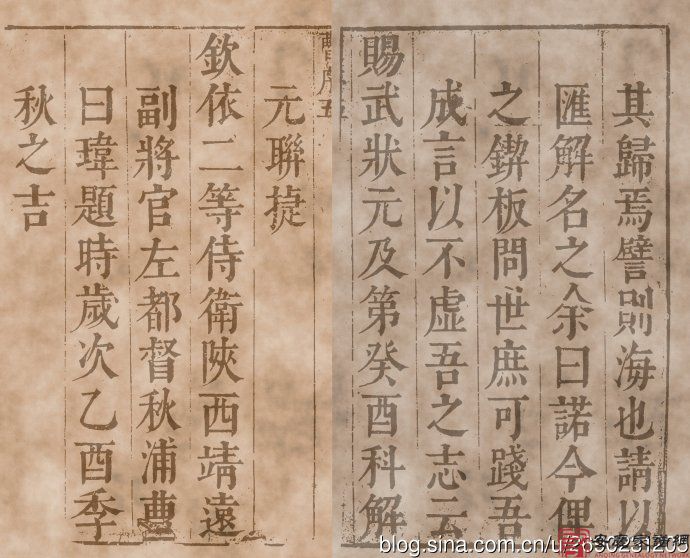 其歸焉譬則海也請以
匯解名之余曰諾今俾
之鍥板問世庶可踐吾
成言以不虛吾之志云
賜武狀元及第癸酉科解
元聯捷
欽依二等侍衛陝西靖遠
副將官左都督秋浦曹
曰瑋題時歲次乙酉季
秋之吉
blog.sina.com.cn/u/